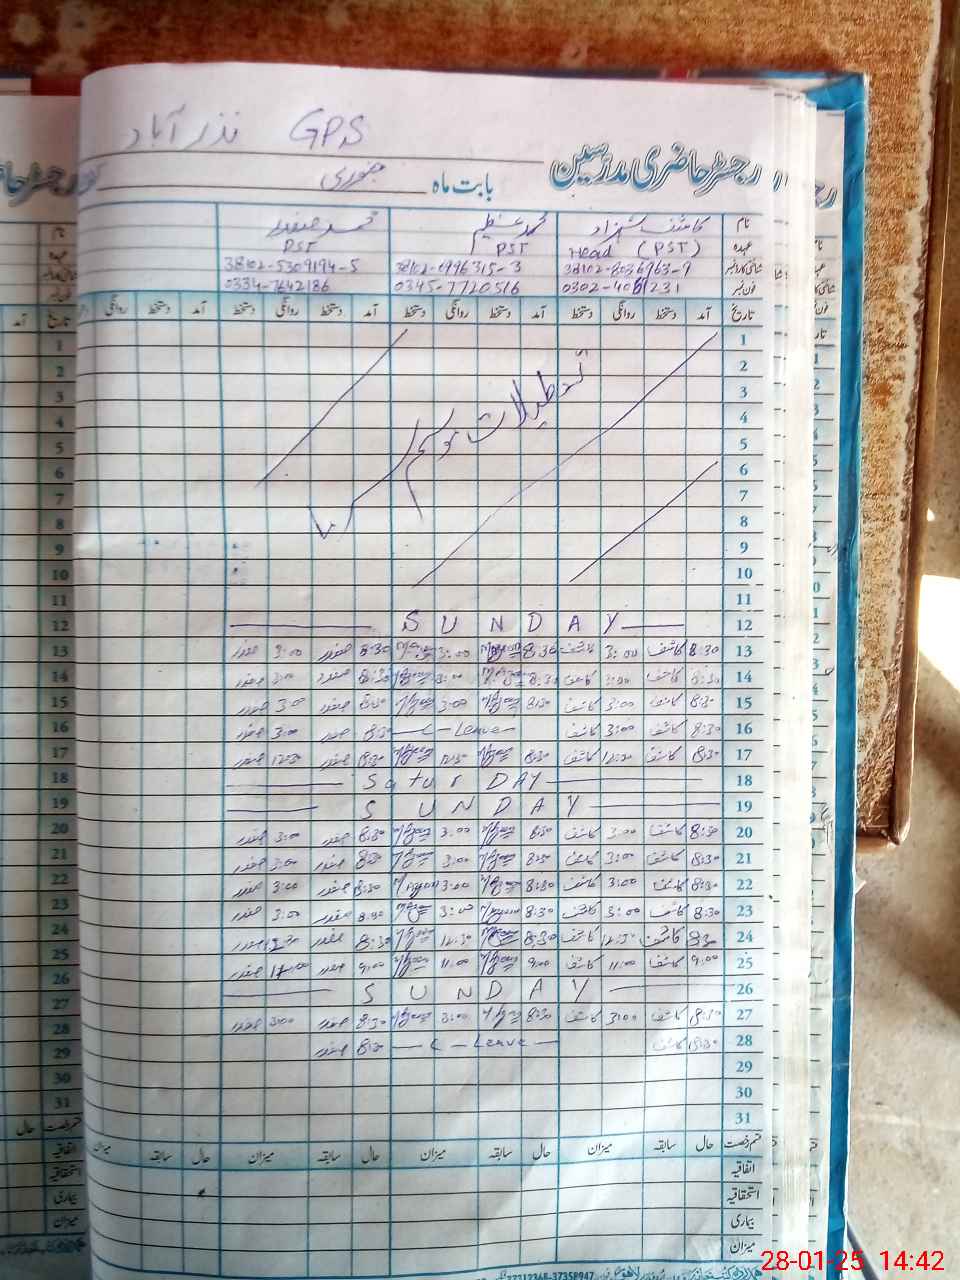 GPS نذر آباد
رجسٹر حاضری مدرسین
بابت ماہ جنوری
نام کاشف شہزاد محمد عظیم محمد صفدر
عہدہ Head (PST) PST PST
شناختی کارڈ نمبر 38102-8036963-9 38102-6996315-3 38102-5309194-5
فون نمبر 0302-4061231 0345-7720516 0334-7642186
تاریخ آمد دستخط روانگی دستخط آمد دستخط روانگی دستخط آمد دستخط روانگی دستخط آمد دستخط روانگی
1
2
3
4
5
6
7
8
9
10
تعطیلات موسم سرما
11
12 SUNDAY
13 8:30 کاشف 3:00 کاشف 8:30 3:00 8:30 صفدر 3:00 صفدر
14 8:30 کاشف 3:00 کاشف 8:30 3:00 8:30 صفدر 3:00 صفدر
15 8:30 کاشف 3:00 کاشف 8:30 3:00 8:30 صفدر 3:00 صفدر
16 8:30 کاشف 3:00 کاشف C-Leave 8:30 صفدر 3:00 صفدر
17 8:30 کاشف 12:30 کاشف 8:30 12:30 8:30 صفدر 12:30 صفدر
18 SaturDAY
19 SUNDAY
20 8:30 کاشف 3:00 کاشف 8:30 3:00 8:30 صفدر 3:00 صفدر
21 8:30 کاشف 3:00 کاشف 8:30 3:00 8:30 صفدر 3:00 صفدر
22 8:30 کاشف 3:00 کاشف 8:30 3:00 8:30 صفدر 3:00 صفدر
23 8:30 کاشف 3:00 کاشف 8:30 3:00 8:30 صفدر 3:00 صفدر
24 8:30 کاشف 12:30 کاشف 8:30 12:30 8:30 صفدر 12:30 صفدر
25 9:00 کاشف 11:00 کاشف 9:00 11:00 9:00 صفدر 11:00 صفدر
26 SUNDAY
27 8:30 کاشف 3:00 کاشف 8:30 3:00 8:30 صفدر 3:00 صفدر
28 8:30 کاشف C-Leave 8:30 صفدر
29
30
31
قسم رخصت حال سابقہ میزان حال سابقہ میزان حال سابقہ میزان حال سابقہ میزان
اتفاقیہ
استحقاقیہ
بیماری
میزان
37312348-37358947
28-01-25 14:42